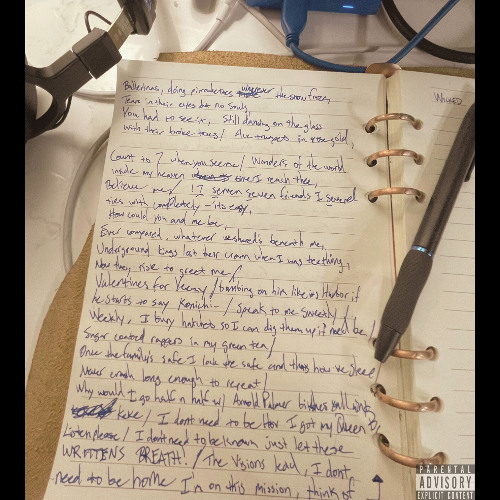 Ballerinas, doing pirouettes wherever the snow frees,
Tears in their eyes but no souls,
You had to see it, Still dancing on the glass
with their broke toes/ Are trumpets in rose gold,
Count to 7 when you see me/ Wonders of the world
inside my heaven once I reach thee,
Believe me/ 17 serven seven friends I severed
ties with completely - its easy,
How could you and me be,
Ever compared, whatever beneath me,
Underground kings lost their crown when I was teething,
Now they rise to greet me/
Valentines for Yeezy/ bombing on him like its Harbor if
he starts to say Konichi-/ Speak to me sweetly/
Weekly, I bury hatchets so I can dig them up if need be/
Sugar coated rappers in my green tea/
Once the family's safe I lock the safe and thats how we sleep
Never crash long enough to repeat/
Why would I go half n half w/ Arnold Palmer
keke/ I dont need to be Hov I got my Queen B,
Listen please/ I dont need to be known just let these
WRITTENS BREATH!/ The Visions lead, I dont
need to be home I'm on this mission, think of
PARENTAL
ADVISORY
EXPLICIT CONTENT